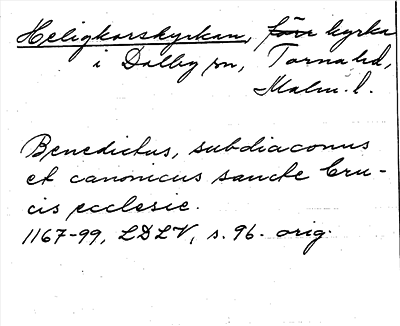 Heligkorskyrkan, förr kyrka
i Dalby sn, Torna hd,
Malm. l.
Benedictus, subdiaconus
et canonicus sancte Cru-
cis ecclesie.
1167-99, LDLV, s. 96. orig.